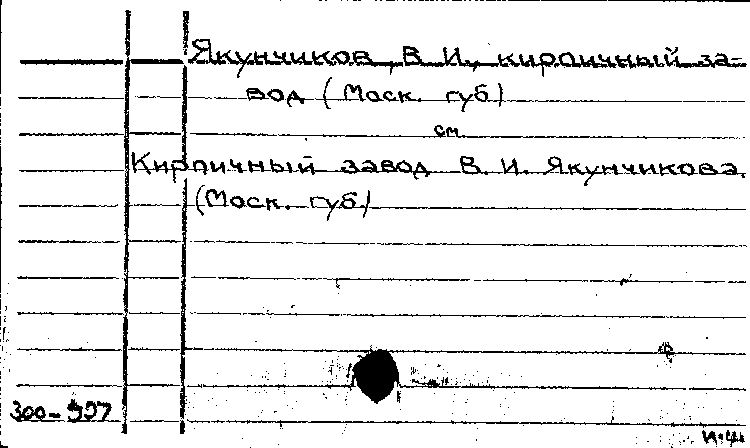 Якунчиков, В. И., кирпичный за-
вод (Моск. губ.)
см.
Кирпичный завод В. И. Якунчикова.
(Моск. губ.)
300-997